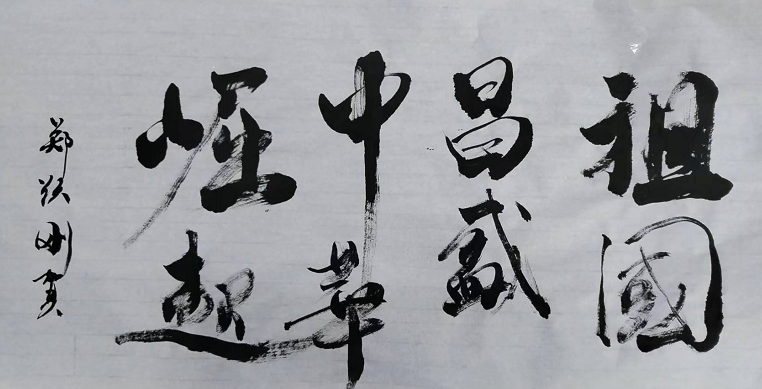 祖國
昌盛
中華
崛起
郑跃刚书